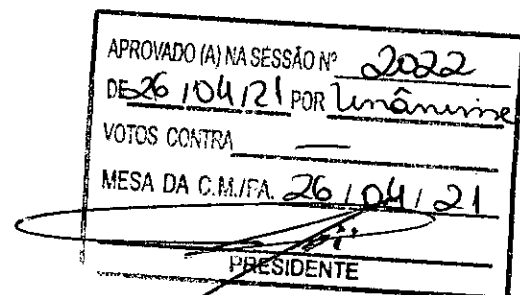 APROVADO (A) NA SESSÃO Nº 2022
DE 26 / 04 / 21 POR Unânime
VOTOS CONTRA —
MESA DA C.M./P.A. 26 / 04 / 21
PRESIDENTE